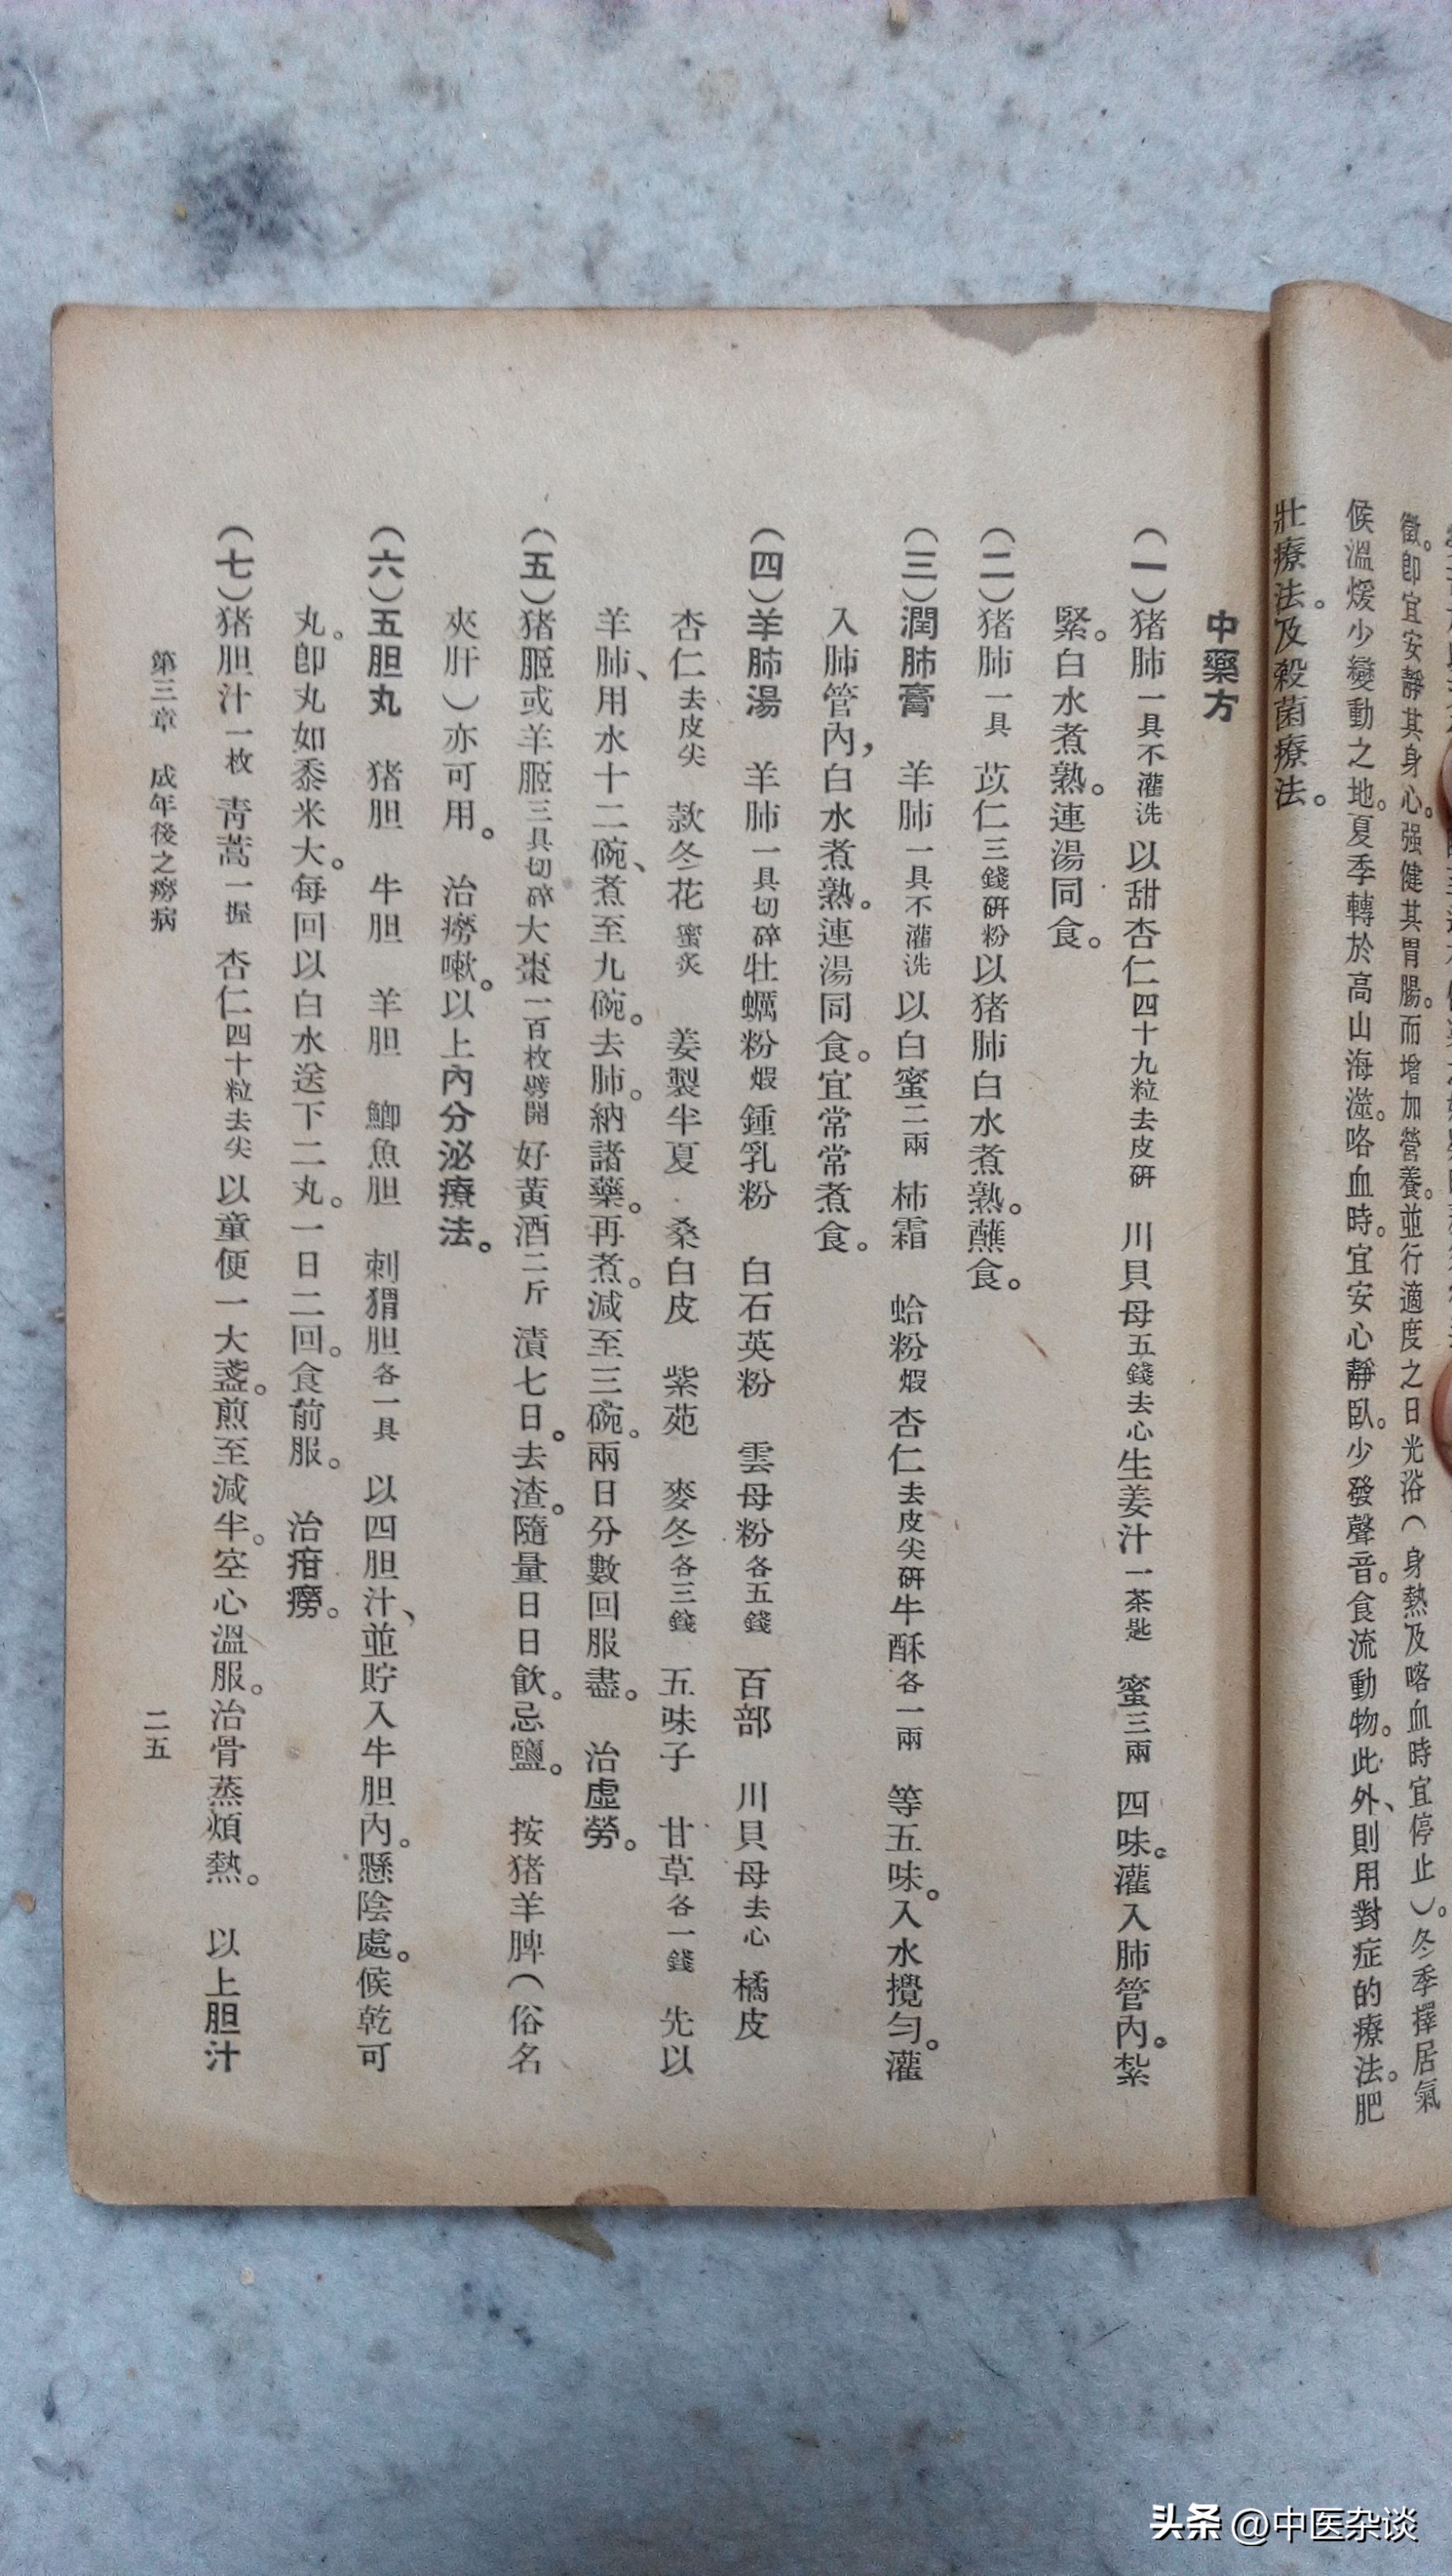 徵。卽宜安靜其身心。强健其胃腸。而增加營養。並行適度之日光浴（身熱及喀血時宜停止）。冬季擇居氣
候溫煖少變動之地。夏季轉於高山海濨。咯血時。宜安心靜臥。少發聲音。食流動物。此外、則用對症的療法。肥
壯療法。及殺菌療法。
中藥方
（一）猪肺一具不灌洗以甜杏仁四十九粒去皮硏 川貝母五錢去心生姜汁一茶匙 蜜三兩 四味。灌入肺管內。紮
緊。白水煮熟。連湯同食。
（二）猪肺一具 苡仁三錢硏粉以猪肺白水煮熟。蘸食。
（三）潤肺膏 羊肺一具不灌洗 以白蜜二兩 柿霜 蛤粉煅 杏仁去皮尖硏牛酥各一兩 等五味。入水攪勻。灌
入肺管內，白水煮熟。連湯同食。宜常常煮食。
（四）羊肺湯 羊肺一具切碎牡蠣粉煅 鍾乳粉 白石英粉 雲母粉各五錢 百部 川貝母去心 橘皮
杏仁去皮尖 款冬花蜜炙 姜製半夏 桑白皮 紫苑 麥冬各三錢 五味子 甘草各一錢 先以
羊肺、用水十二碗、煮至九碗。去肺。納諸藥。再煮。減至三碗。兩日分數回服盡。 治虛勞。
（五）猪胵或羊胵三具切碎大棗一百枚劈開 好黃酒二斤 漬七日。去渣。隨量日日飮。忌鹽。 按猪羊脾（俗名
夾肝）亦可用。 治癆嗽。以上內分泌療法。
（六）五胆丸 猪胆 牛胆 羊胆 鯽魚胆 刺猬胆各一具 以四胆汁、並貯入牛胆內。懸陰處。候乾可
丸。卽丸如黍米大。每回以白水送下二丸。一日二回。食前服。 治疳癆。
（七）猪胆汁一枚 靑蒿一握 杏仁四十粒去尖 以童便一大盞。煎至減半。空心溫服。治骨蒸煩熱。 以上胆汁
第三章 成年後之癆病
二五
头条 @中医杂谈